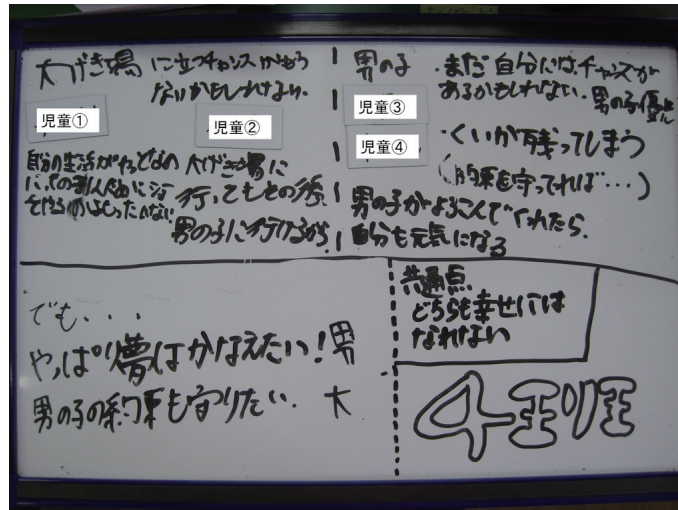 大げき場 に立つチャンスがもう
ないかもしれない。
児童①
児童②
自分の生活がやっとなの
に、その
大げき場に
行ってもその後、
男の子に行けるから
男の子
・まだ自分にはチャンスが
あるかもしれない。男の子優先
児童③
児童④
・くいが残ってしまう
(約束を守ってれば…)
男の子がよろこんでくれたら、
自分も元気になる
でも...
やっぱり夢はかなえたい!男
男の子の約束も守りたい。大
共通点
どちらも幸せには
なれない
4班